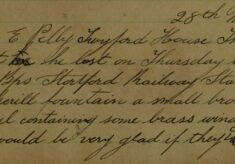 28th
E Pelly Twyford House
he lost on Thursday
Bps Stortford Railway Sta
fountain a small bro
containing some brass wind
ould be very glad if they